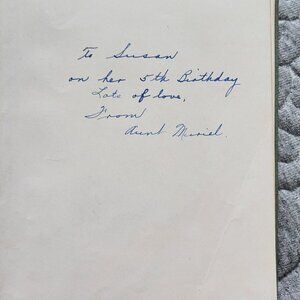 To Susan
on her 5th Birthday
Lots of love,
From
Aunt Muriel.